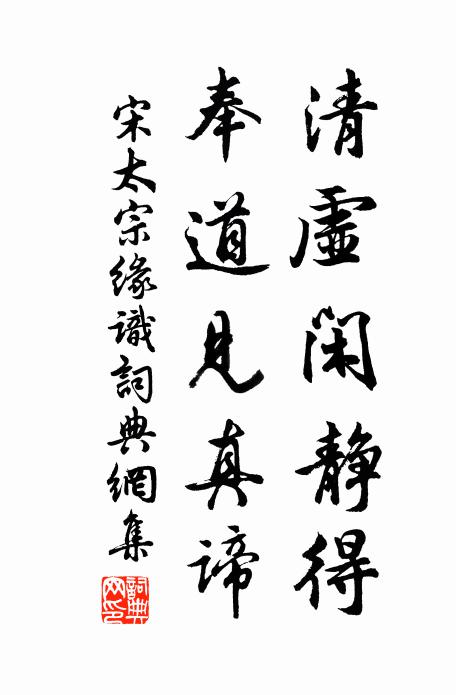 清虛閑靜得
奉道見真諦
宋太宗緣識詞典網集
詞典網印